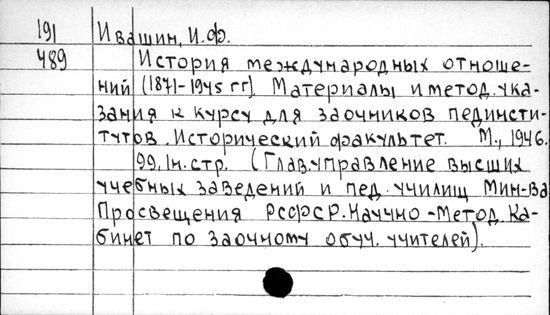 191 Ивашин, И.Ф.
489 История междунapодных отноше-
ний (1871-1945 гг). Материалы и метод. ука-
зания к курсу для заочников пединсти-
тутов. Исторический факультет. М., 1946.
99, 1н. стр. (Глав. управление высших
учебных заведений и пед. училищ Мин-ва
Просвещения РСФСР. Научно-метод. ка-
бинет по заочному обуч. учителей).